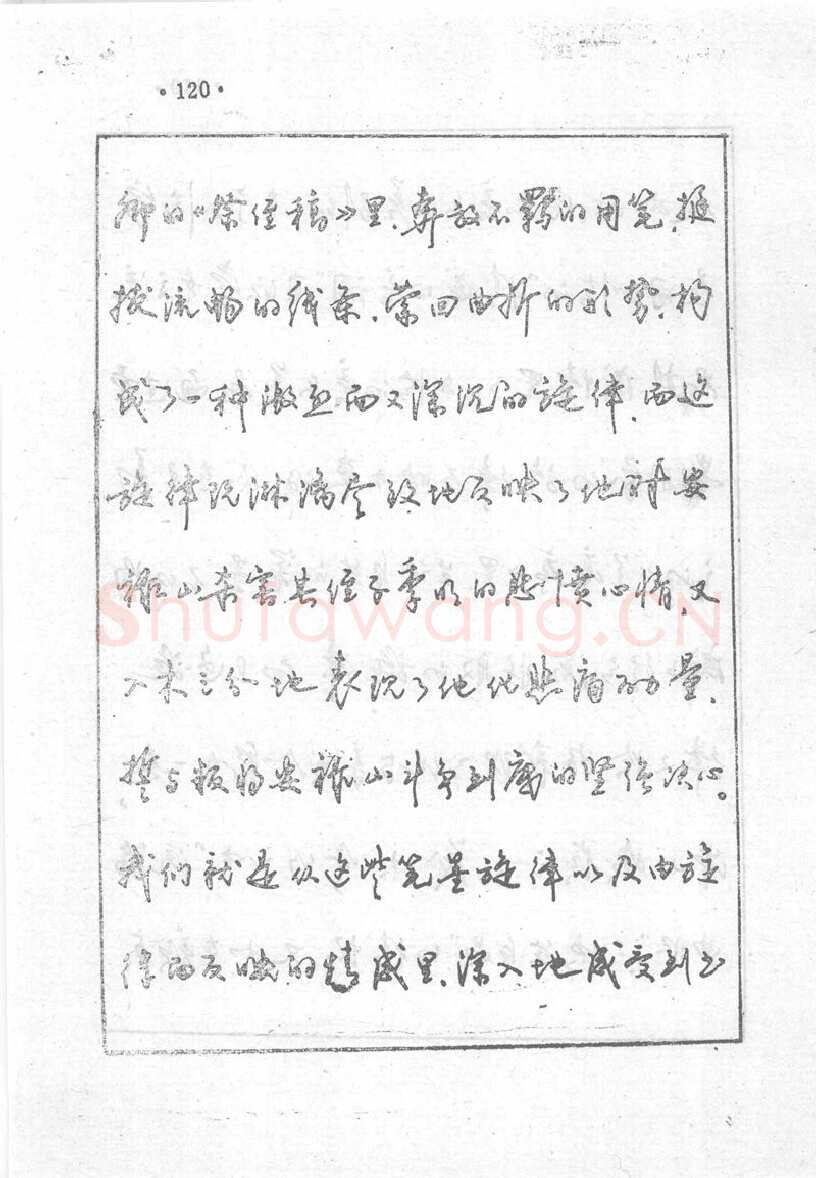 ·120·
卿的《祭侄稿》里,奔放不羁的用笔,挺
拔流畅的线条,萦回曲折的形势,构
成了一种激烈而又深沉的旋律,而这
旋律既淋漓尽致地反映了他对安
禄山杀害其侄子季明的悲愤心情,又
入木三分地表现了他化悲痛为力量,
誓与叛将安禄山斗争到底的坚强决心。
我们就是从这些笔墨旋律以及由旋
律而反映的情感里,深入地感受到了
Shufawang.CN